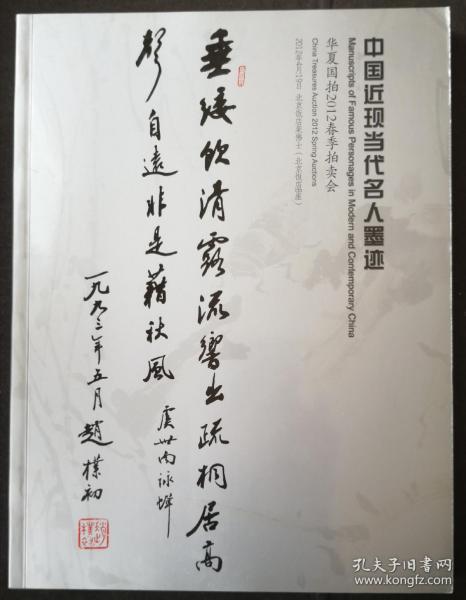 中国近现当代名人墨迹
Manuscripts of Famous Personages in Modern and Contemporary China
华夏国拍2012春季拍卖会
China Treasures Auction 2012 Spring Auctions
垂緌飲清露流響出疏桐居高
聲自遠非是藉秋風
虞世南詠蟬
一九九三年五月趙樸初
孔夫子旧书网
www.kongfz.com